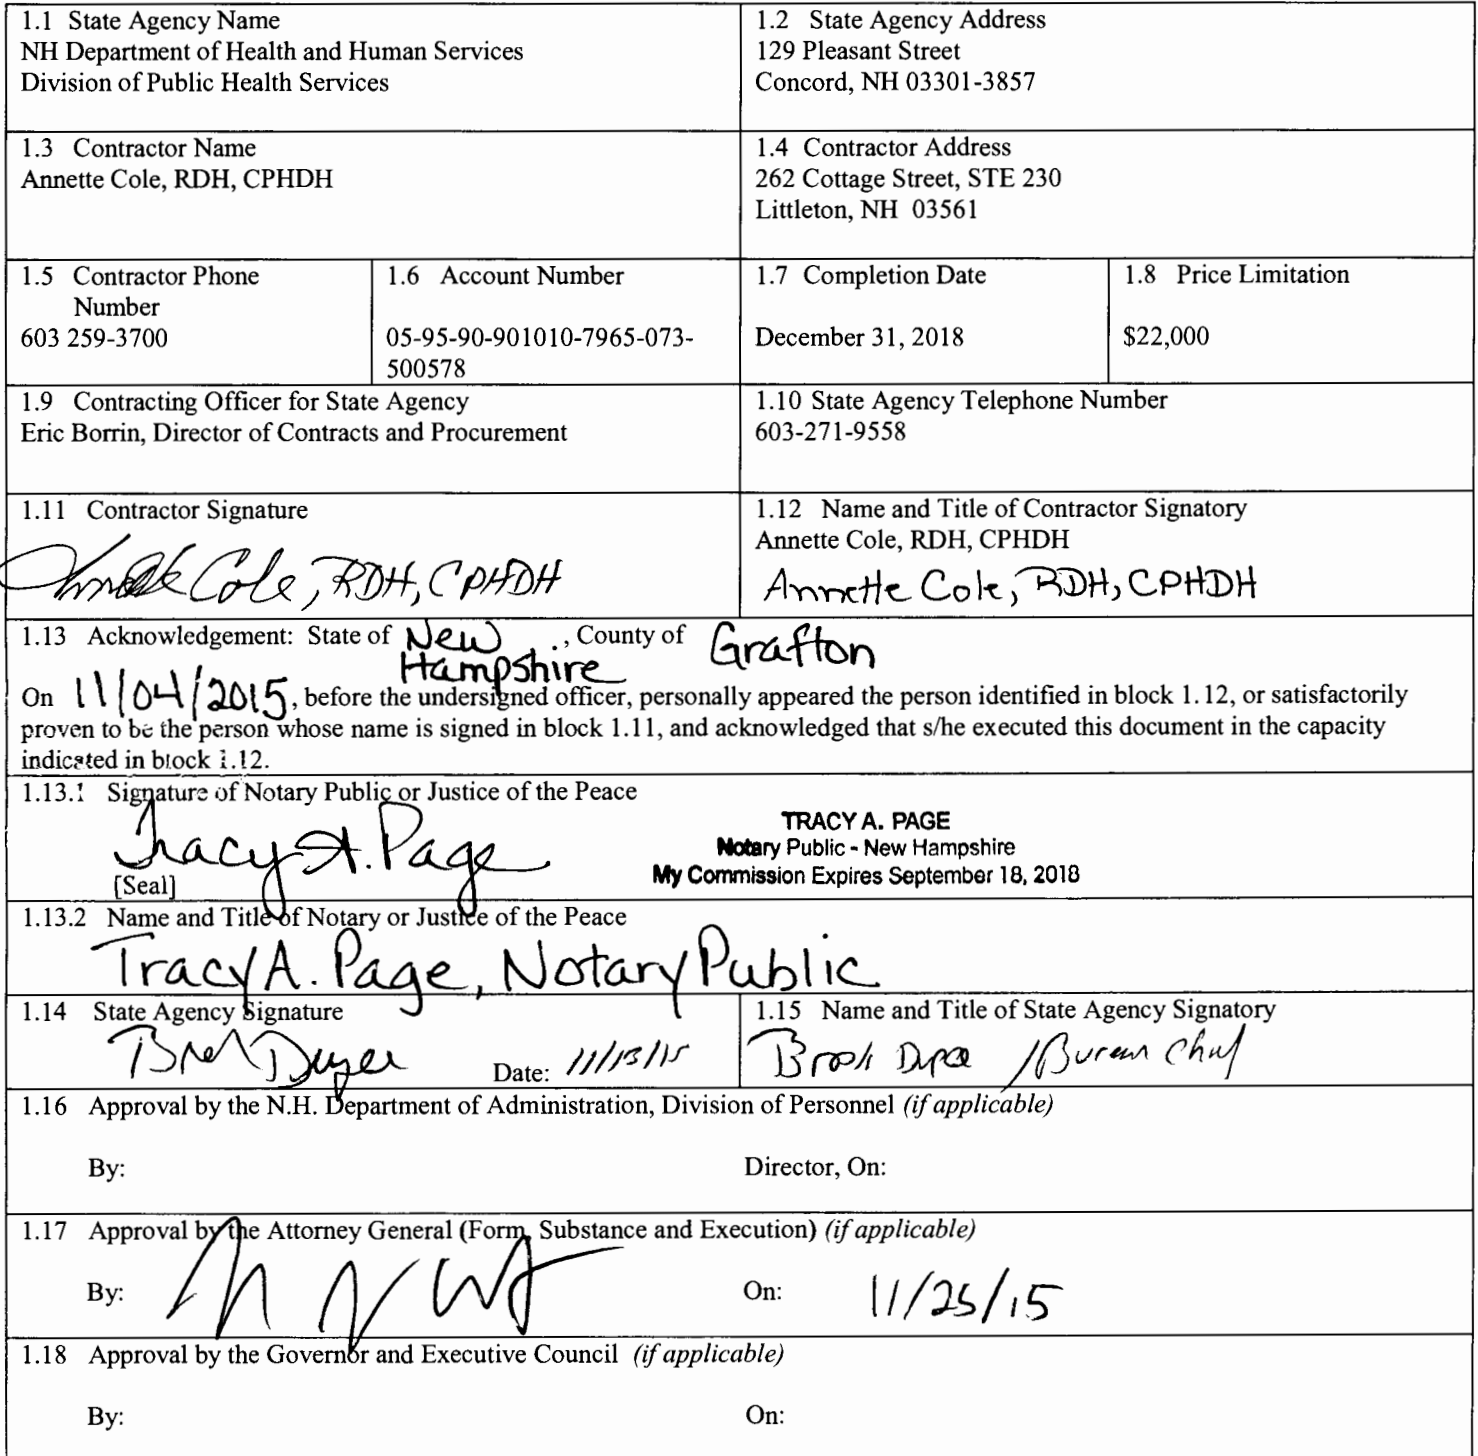 1.1 State Agency Name
NH Department of Health and Human Services
Division of Public Health Services
1.2 State Agency Address
129 Pleasant Street
Concord, NH 03301-3857
1.3 Contractor Name
Annette Cole, RDH, CPHDH
1.4 Contractor Address
262 Cottage Street, STE 230
Littleton, NH 03561
1.5 Contractor Phone
Number
603 259-3700
1.6 Account Number
05-95-90-901010-7965-073-
500578
1.7 Completion Date
December 31, 2018
1.8 Price Limitation
$22,000
1.9 Contracting Officer for State Agency
Eric Borrin, Director of Contracts and Procurement
1.10 State Agency Telephone Number
603-271-9558
1.11 Contractor Signature
Annette Cole, RDH, CPHDH
1.12 Name and Title of Contractor Signatory
Annette Cole, RDH, CPHDH
Annette Cole, RDH, CPHDH
1.13 Acknowledgement: State of New Hampshire, County of Grafton
On 11/04/2015, before the undersigned officer, personally appeared the person identified in block 1.12, or satisfactorily
proven to be the person whose name is signed in block 1.11, and acknowledged that s/he executed this document in the capacity
indicated in block 1.12.
1.13.1 Signature of Notary Public or Justice of the Peace
Tracy A. Page
[Seal]
TRACY A. PAGE
Notary Public - New Hampshire
My Commission Expires September 18, 2018
1.13.2 Name and Title of Notary or Justice of the Peace
Tracy A. Page, Notary Public
1.14 State Agency Signature
Date: 11/13/15
1.15 Name and Title of State Agency Signatory
Brook Dupee / Bureau Chief
1.16 Approval by the N.H. Department of Administration, Division of Personnel (if applicable)
By:
Director, On:
1.17 Approval by the Attorney General (Form, Substance and Execution) (if applicable)
By:
On: 11/25/15
1.18 Approval by the Governor and Executive Council (if applicable)
By:
On: